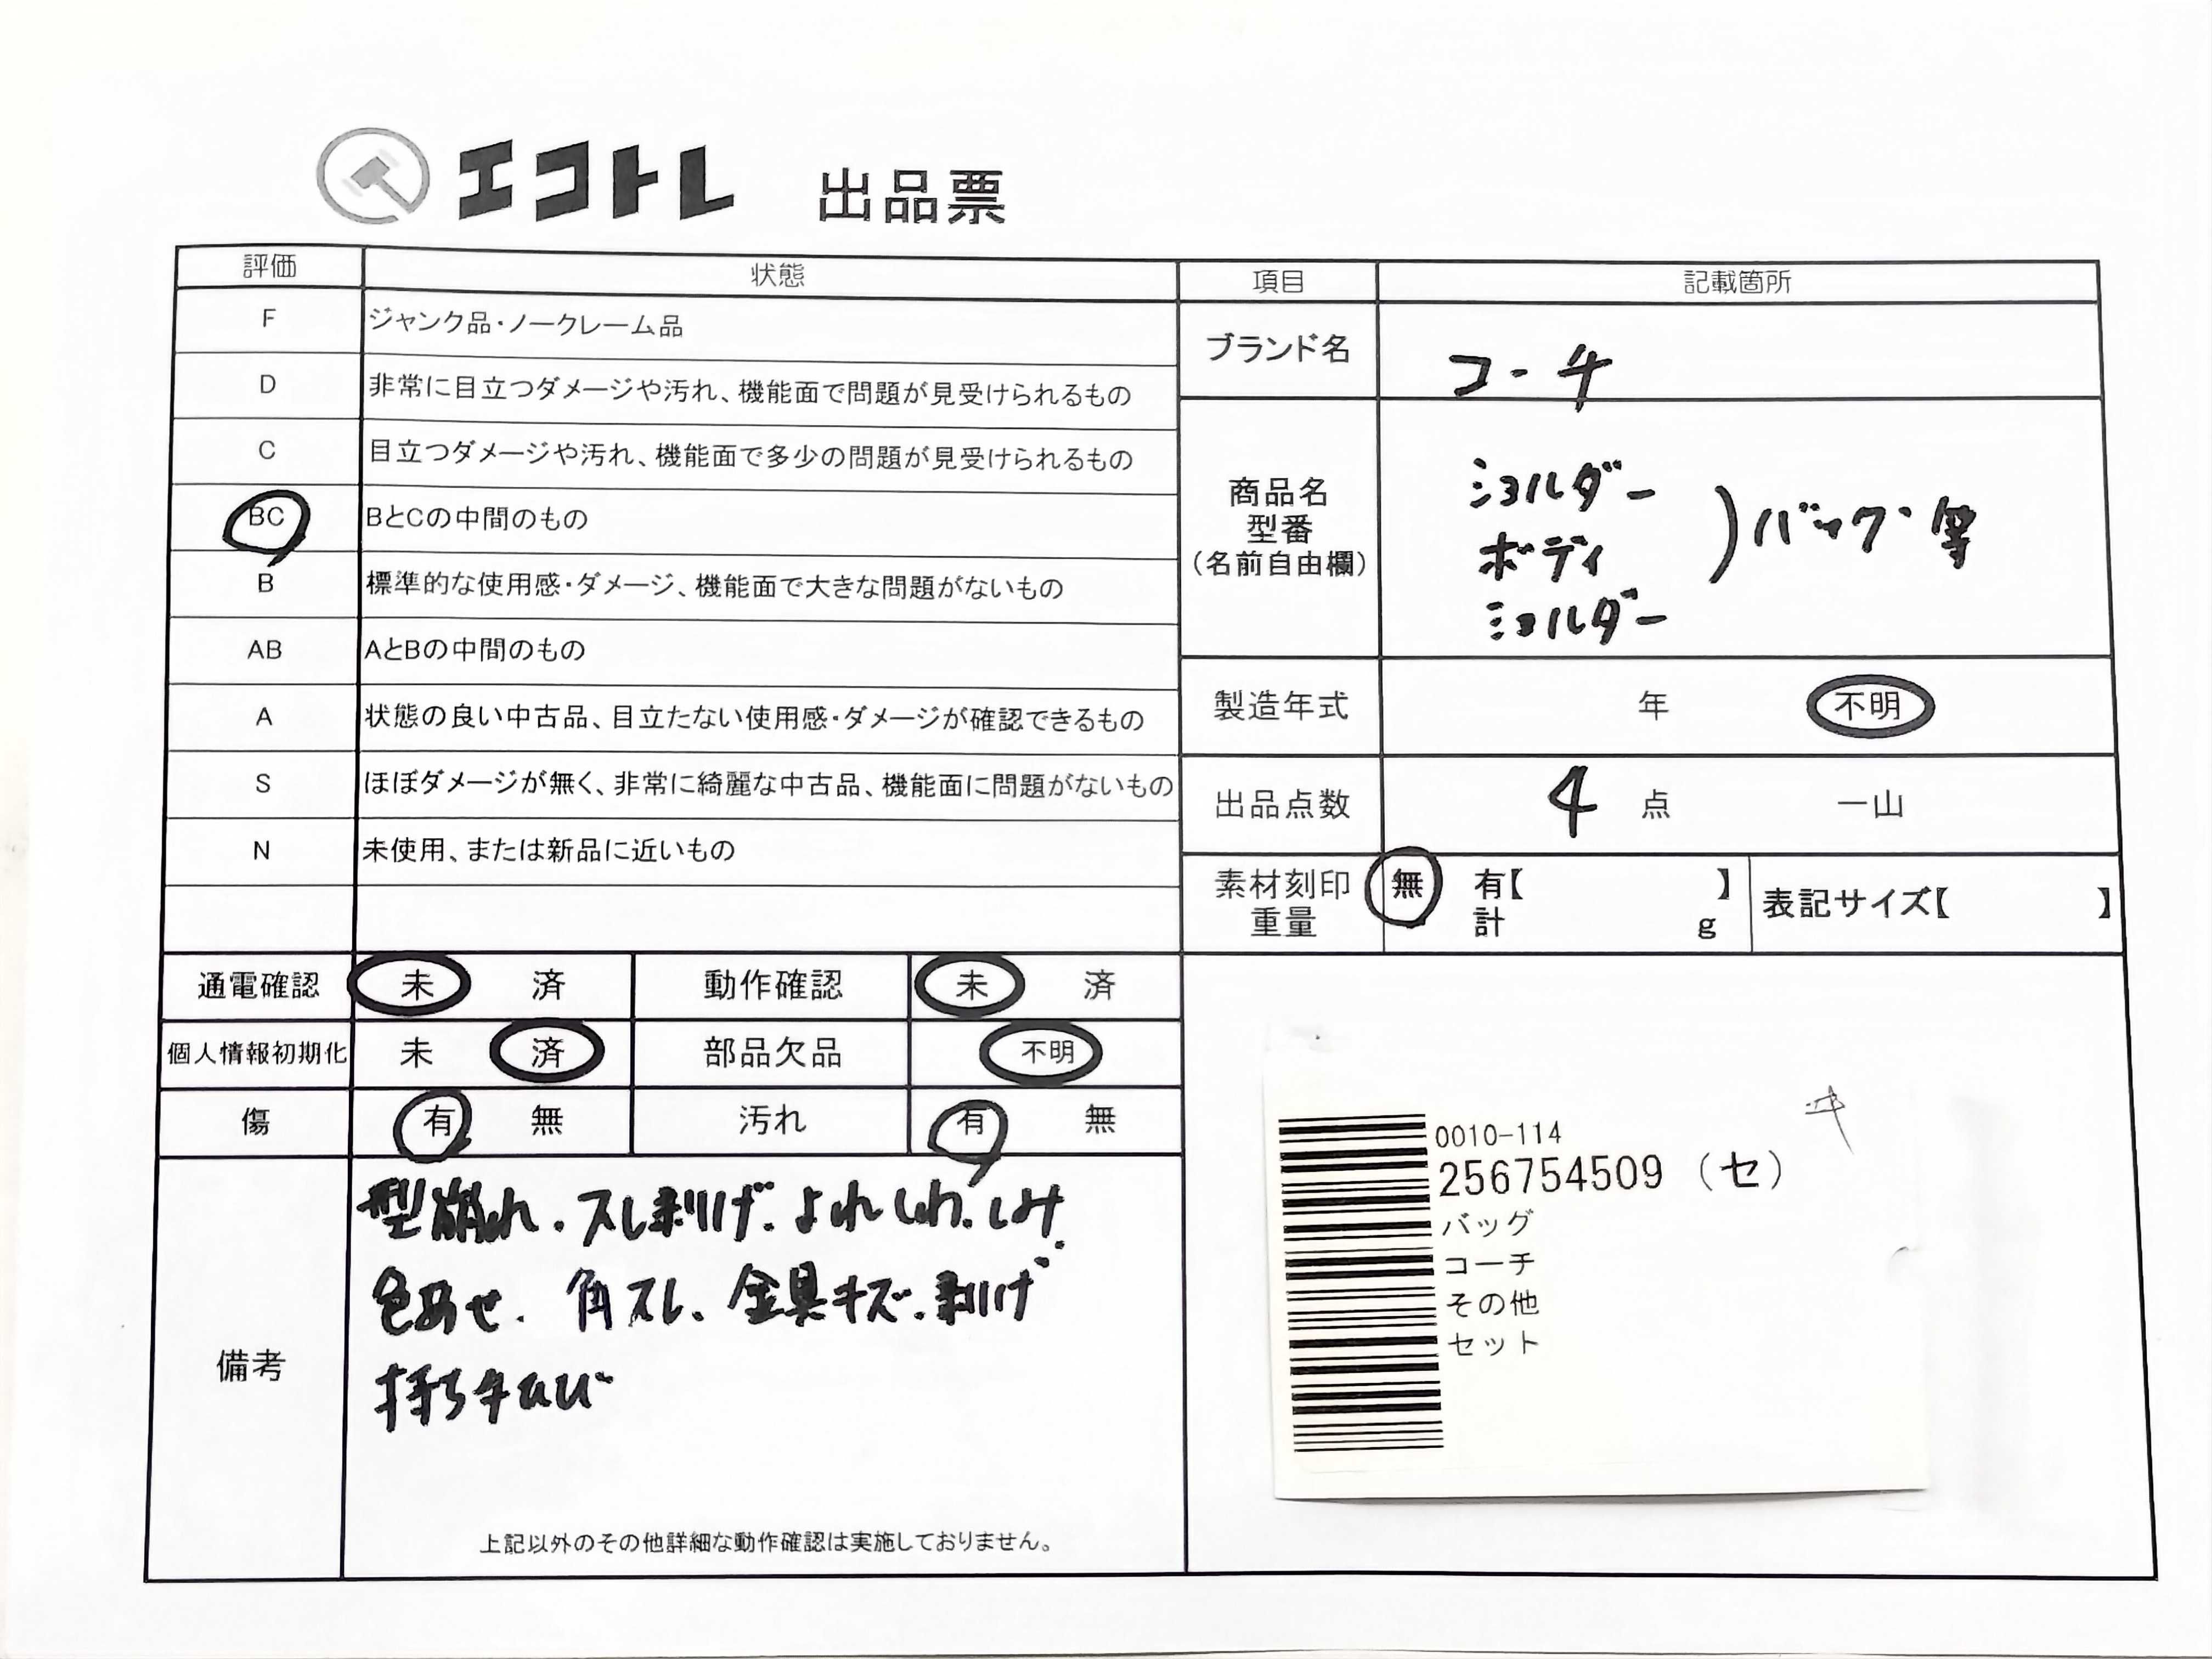 エコトレ 出品票
評価 状態 項目 記載箇所
F ジャンク品・ノークレーム品
D 非常に目立つダメージや汚れ、機能面で問題が見受けられるもの
C 目立つダメージや汚れ、機能面で多少の問題が見受けられるもの
BC BとCの中間のもの
B 標準的な使用感・ダメージ、機能面で大きな問題がないもの
AB AとBの中間のもの
A 状態の良い中古品、目立たない使用感・ダメージが確認できるもの
S ほぼダメージが無く、非常に綺麗な中古品、機能面に問題がないもの
N 未使用、または新品に近いもの
ブランド名 コーチ
商品名
型番
(名前自由欄)
ショルダー
ボディ
ショルダー
)バック等
製造年式 年 不明
出品点数 4 点 一山
素材刻印 無 有【 】
重量 計 g
表記サイズ【 】
通電確認 未 済 動作確認 未 済
個人情報初期化 未 済 部品欠品 不明
傷 有 無 汚れ 有 無
備考
型崩れ.スレ剥げ.よれしわ.しみ
色あせ.角スレ、金具キズ.剥げ
持ち手ひび
上記以外のその他詳細な動作確認は実施しておりません。
0010-114
256754509 (セ)
バッグ
コーチ
その他
セット